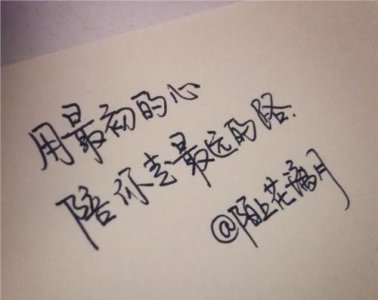 用最初的心
陪你去最远的路.
@陌上花满月